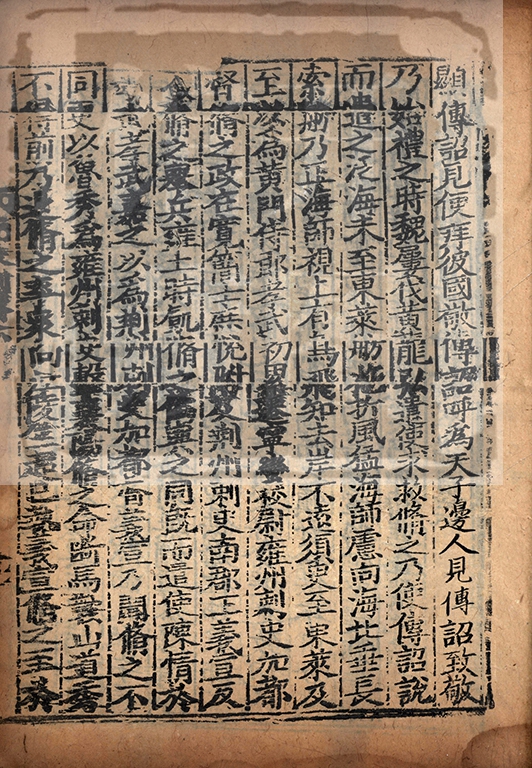 顯傳詔見便拜彼國敬傳詔呼為天子邊人見傳詔致敬
乃始禮之時魏屢伐黃龍弘遣使求救脩之乃使傳詔說
而遣之泛海未至東萊舫柂折風猛海師慮向海北垂長
索舫乃正海師視上有鳥飛知去岸不遠須臾至東萊及
至以為黃門侍郎孝武初累遷寧蠻校尉雍州刺史加都
督脩之政在寬簡士庶悅附及荊州刺史南郡王義宣反
脩之舉兵雍土時飢脩之偽與之同既而遣使陳情於
孝武孝武嘉之以為荊州刺史加都督義宣乃聞脩之不
同更以魯秀為雍州刺史擊襄陽脩之命斷馬鞍山道秀
不得前乃退脩之率衆向江陵